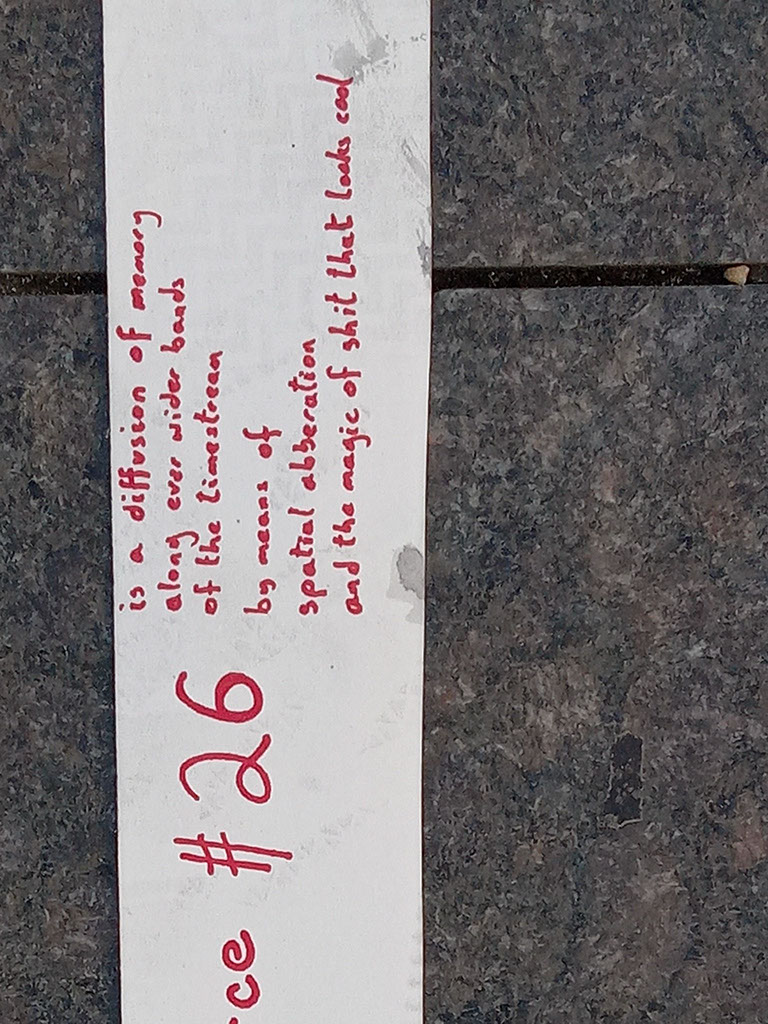 rce #26
is a diffusion of memory
along ever wider bands
of the timestream
by means of
spatial abberation
and the magic of shit that looks cool